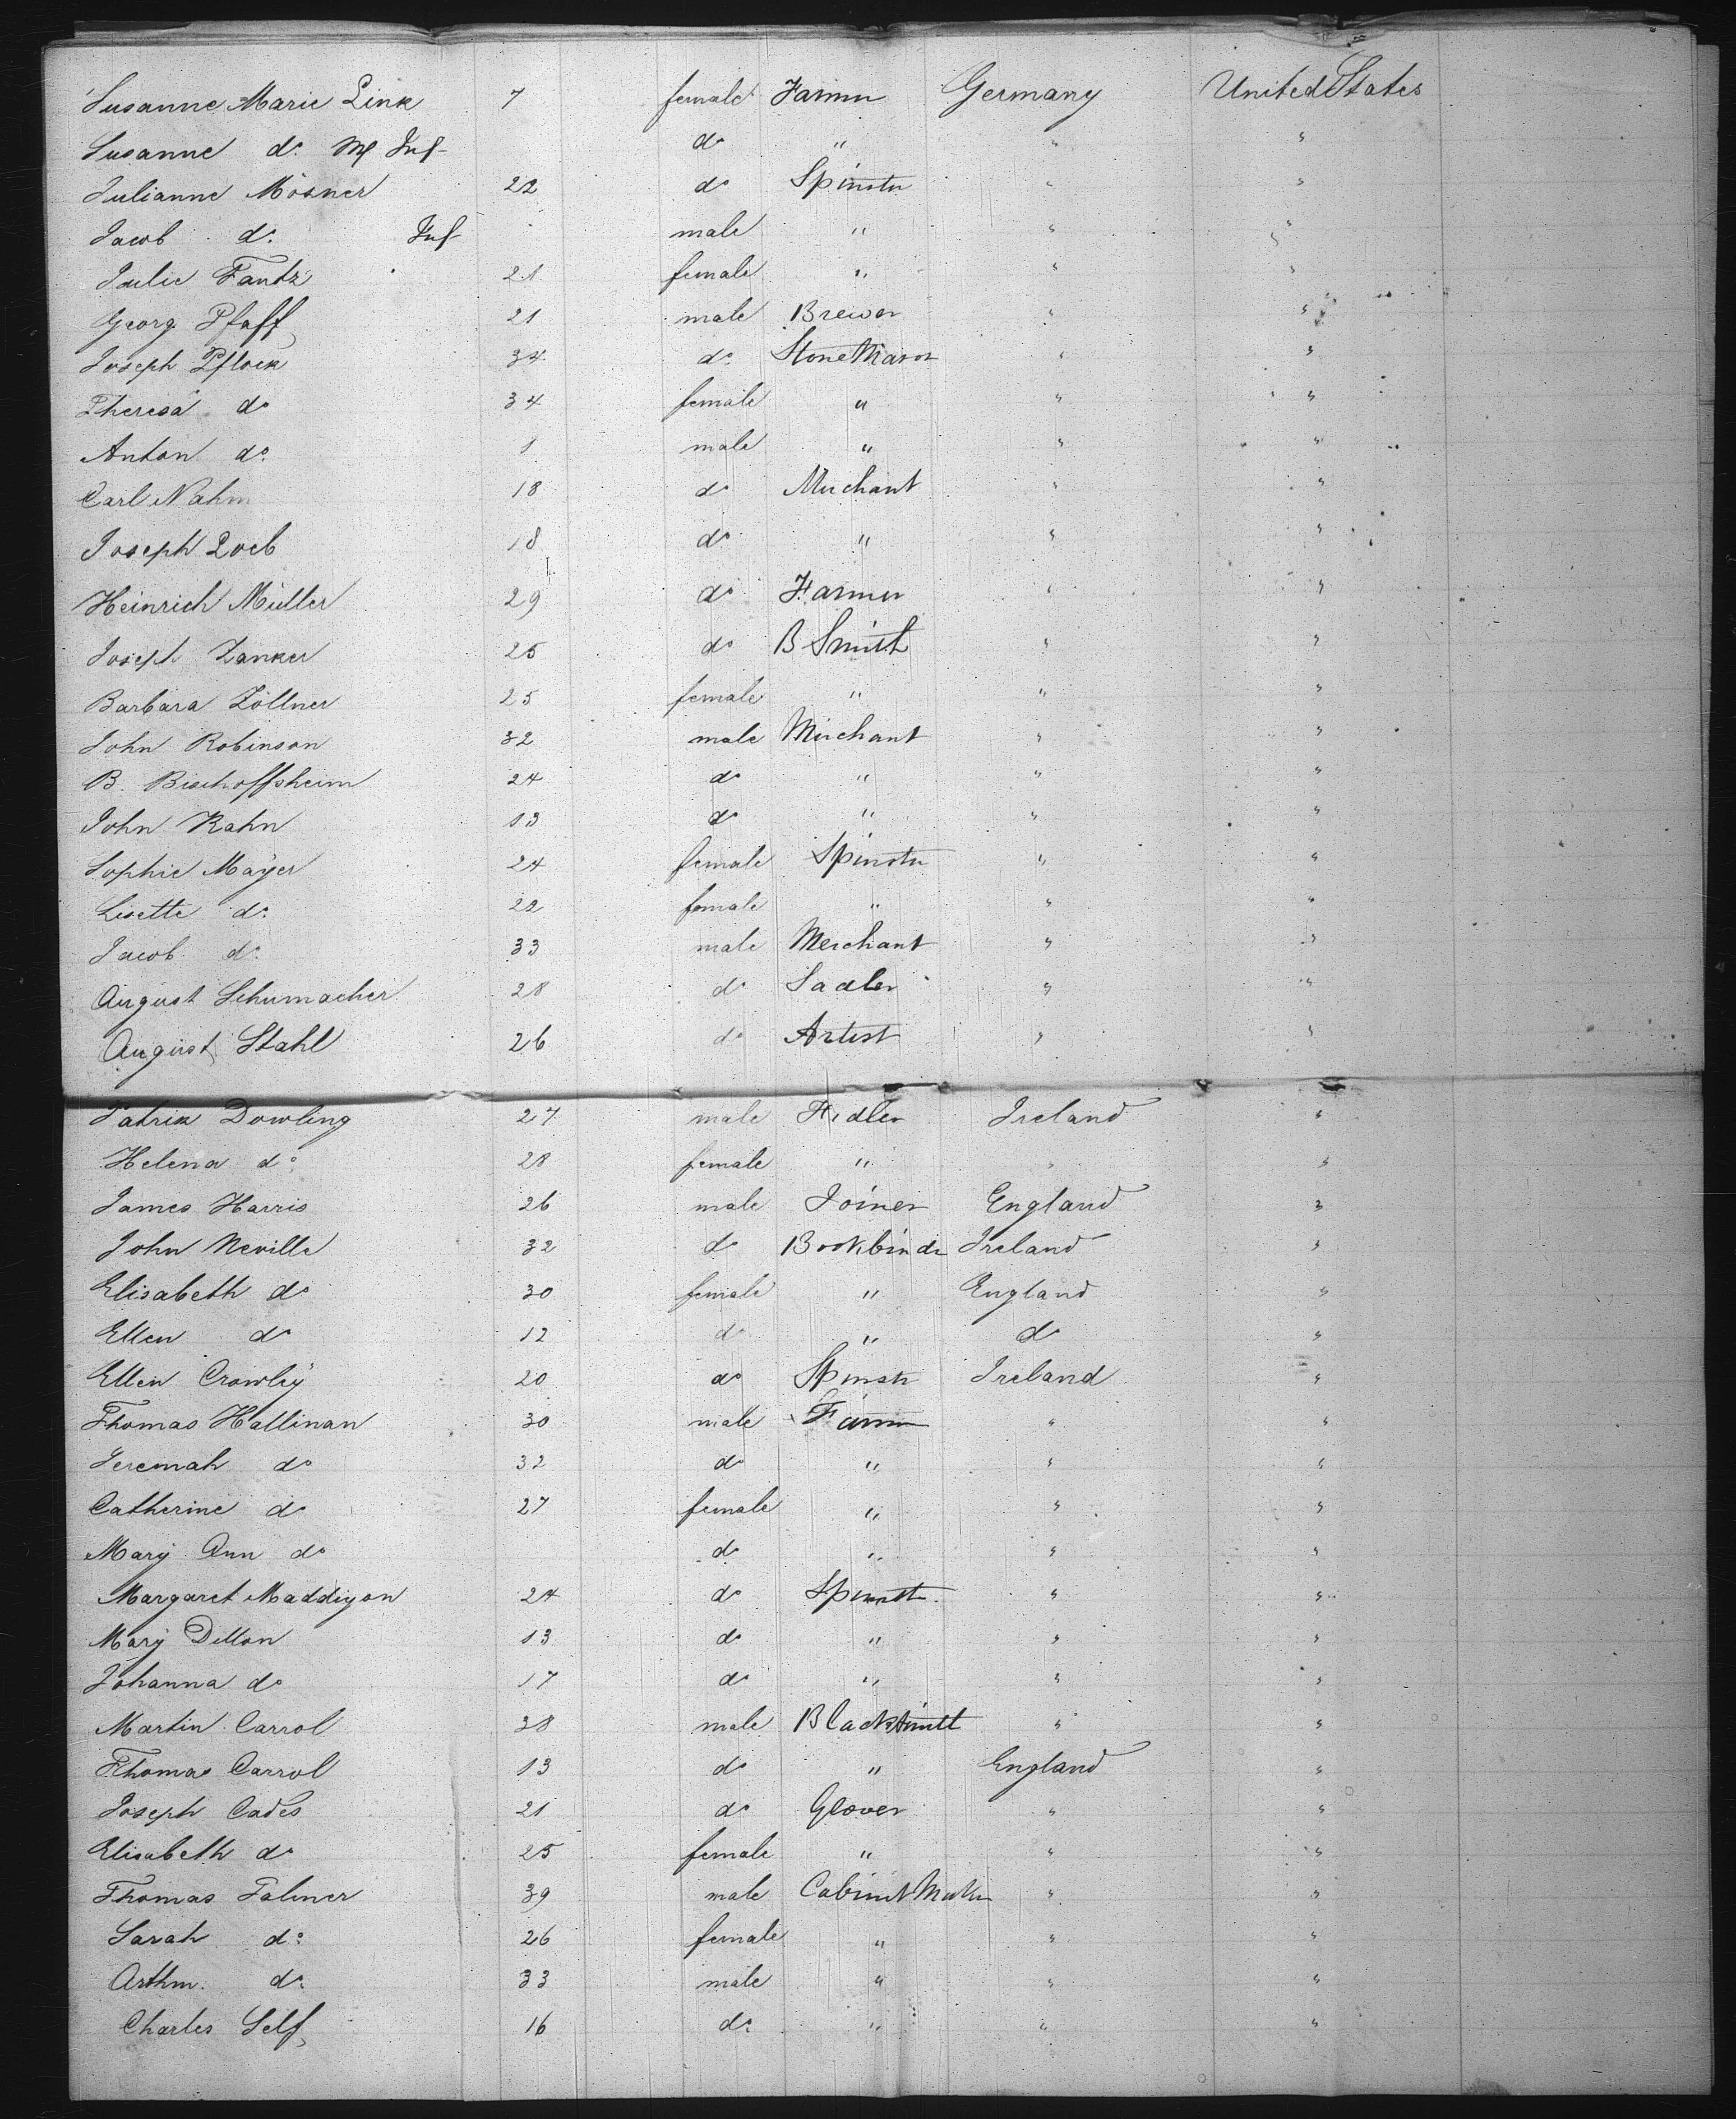 Susanne Marie Link 7 female Farmer Germany United States
Susanne do M Inf do " " "
Julianne Mösner 22 do Spinster " "
Jacob do Inf male " " "
Julie Fantz 21 female " " "
Georg Pfaff 21 male Brewer " "
Joseph Pflock 34 do Stone Mason " "
Theresa do 34 female " " "
Anton do 1 male " " "
Carl Nahm 18 do Merchant " "
Joseph Loeb 18 do " " "
Heinrich Müller 29 do Farmer " "
Joseph Zanker 25 do B Smith " "
Barbara Zöllner 25 female " " "
John Robinson 32 male Merchant " "
B. Bischoffsheim 24 do " " "
John Kahn 13 do " " "
Sophie Mayer 24 female Spinster " "
Lisette do 22 female " " "
Jacob do 33 male Merchant " "
August Schumacher 28 do Sadler " "
August Stahl 26 do Artist " "
Patrik Dowling 27 male Fidler Ireland "
Helena do 28 female " " "
James Harris 26 male Joiner England "
John Neville 32 do Bookbinder Ireland "
Elisabeth do 30 female " England "
Ellen do 12 do " do "
Ellen Crowley 20 do Spinster Ireland "
Thomas Hallinan 30 male Farmer " "
Jeremah do 32 do " " "
Catherine do 27 female " " "
Mary Ann do do " " "
Margaret Maddigan 24 do Spinster " "
Mary Dillon 13 do " " "
Johanna do 17 do " " "
Martin Carrol 38 male Blacksmith " "
Thomas Carrol 13 do " England "
Joseph Cades 21 do Glover " "
Elisabeth do 25 female " " "
Thomas Palmer 39 male Cabinet Maker " "
Sarah do 26 female " " "
Arthm. do 33 male " " "
Charles Self 16 do " " "